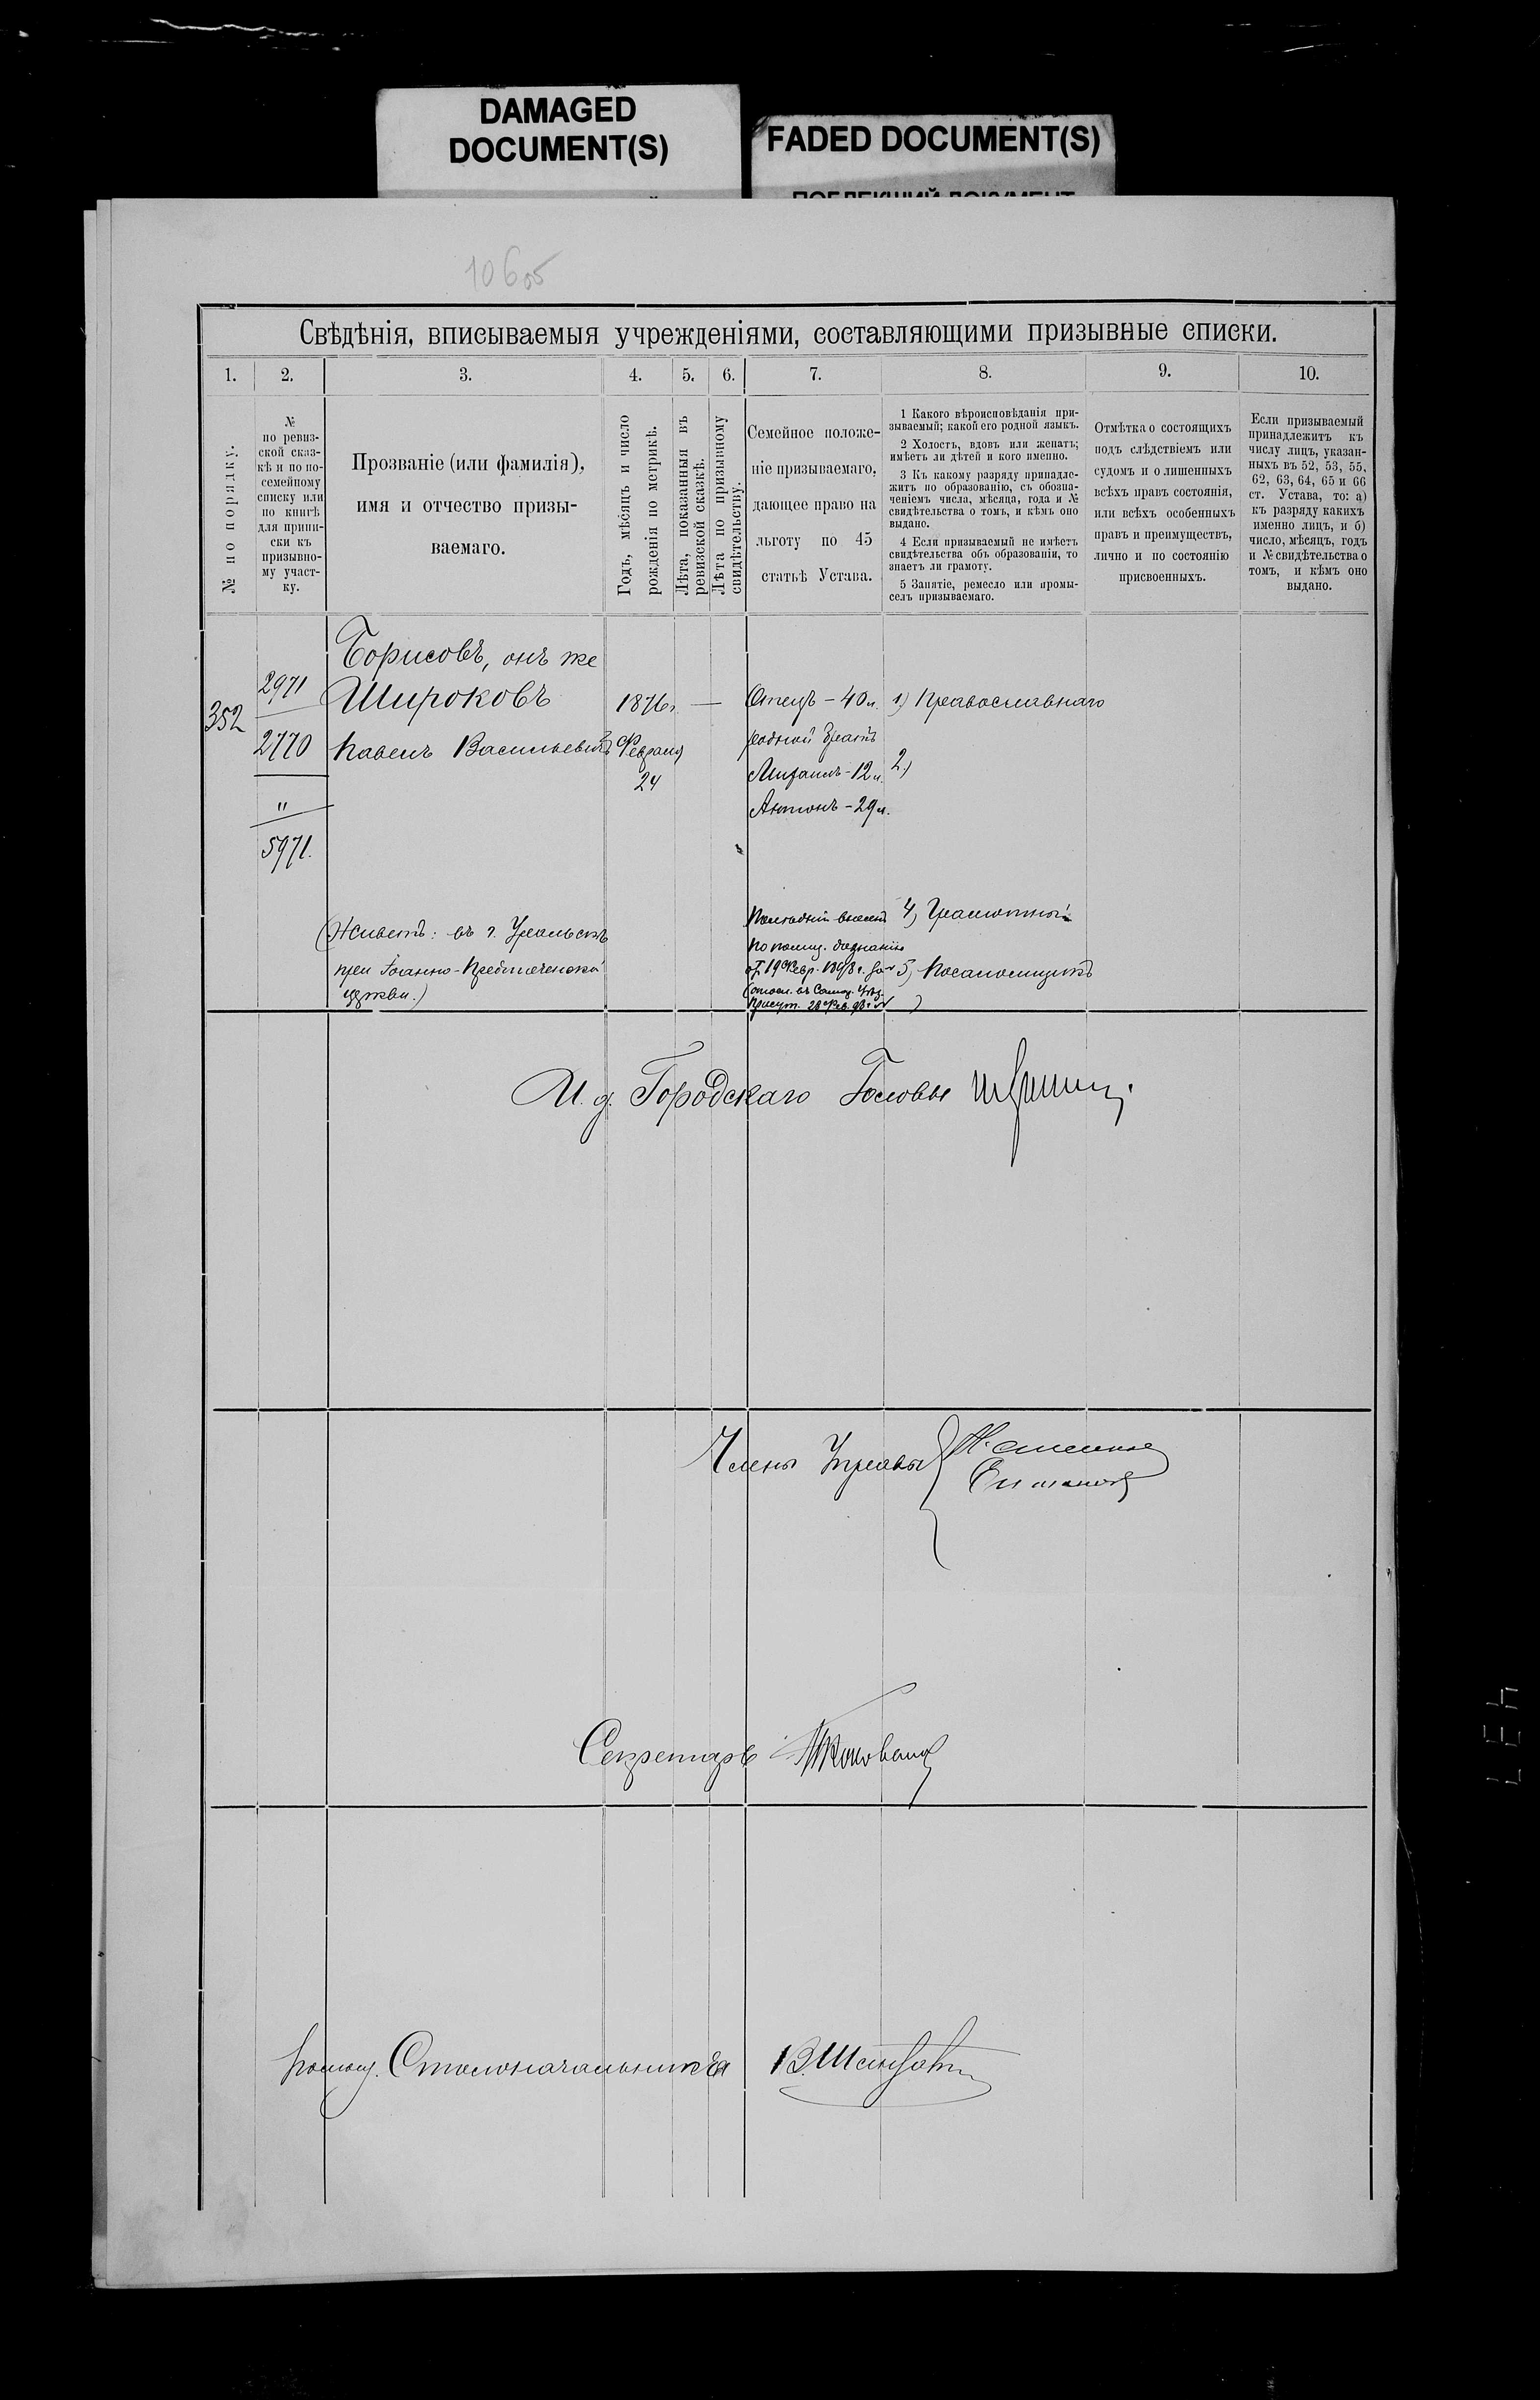 DAMAGED
DOCUMENT(S)
FADED DOCUMENT(S)
10605
Свѣдѣнія, вписываемыя учрежденіями, составляющими призывные списки.
1. 2. 3. 4. 5. 6. 7. 8. 9. 10.
№ по порядку.
№
по ревиз-
ской сказ-
кѣ и по по-
семейному
списку или
по книгѣ
для припи-
ски къ
призывно-
му участ-
ку.
Прозваніе (или фамилія),
имя и отчество призы-
ваемаго.
Годъ, мѣсяцъ и число
рожденія по метрикѣ.
Лѣта, показанныя въ
ревизской сказкѣ.
Лѣта по призывному
свидѣтельству.
Семейное положе-
ніе призываемаго,
дающее право на
льготу по 45
статьѣ Устава.
1 Какого вѣроисповѣданія при-
зываемый; какой его родной языкъ.
2 Холостъ, вдовъ или женатъ;
имѣетъ ли дѣтей и кого именно.
3 Къ какому разряду принадле-
житъ по образованію, съ обозна-
ченіемъ числа, мѣсяца, года и №
свидѣтельства о томъ, и кѣмъ оно
выдано.
4 Если призываемый не имѣетъ
свидѣтельства объ образованіи, то
знаетъ ли грамоту.
5 Занятіе, ремесло или промы-
селъ призываемаго.
Отмѣтка о состоящихъ
подъ слѣдствіемъ или
судомъ и о лишенныхъ
всѣхъ правъ состоянія,
или всѣхъ особенныхъ
правъ и преимуществъ,
лично и по состоянію
присвоенныхъ.
Если призываемый
принадлежитъ къ
числу лицъ, указан-
ныхъ въ 52, 53, 55,
62, 63, 64, 65 и 66
ст. Устава, то: а)
къ разряду какихъ
именно лицъ, и б)
число, мѣсяцъ, годъ
и № свидѣтельства о
томъ, и кѣмъ оно
выдано.
352
2971
2770
"
5971.
Борисовъ, онъ же
Широковъ
Павелъ Васильевичъ
(Живетъ: въ г. Уральскѣ
при Іоанно-Предтеченской
церкви.)
1876г.
Февраля
24
—
Отецъ – 40 л.
родной братъ
Михаилъ – 12 л.
Антонъ – 29 л.
Последній внесенъ
по полиц. дознанію
от 19 Февр. 1898 г.
28 Фев. 98 г.
1) Православнаго
2)
4) Грамотный
5)
И. д. Городскаго Головы
Члены Управы
Секретарь
Помощ. Столоначальника
437